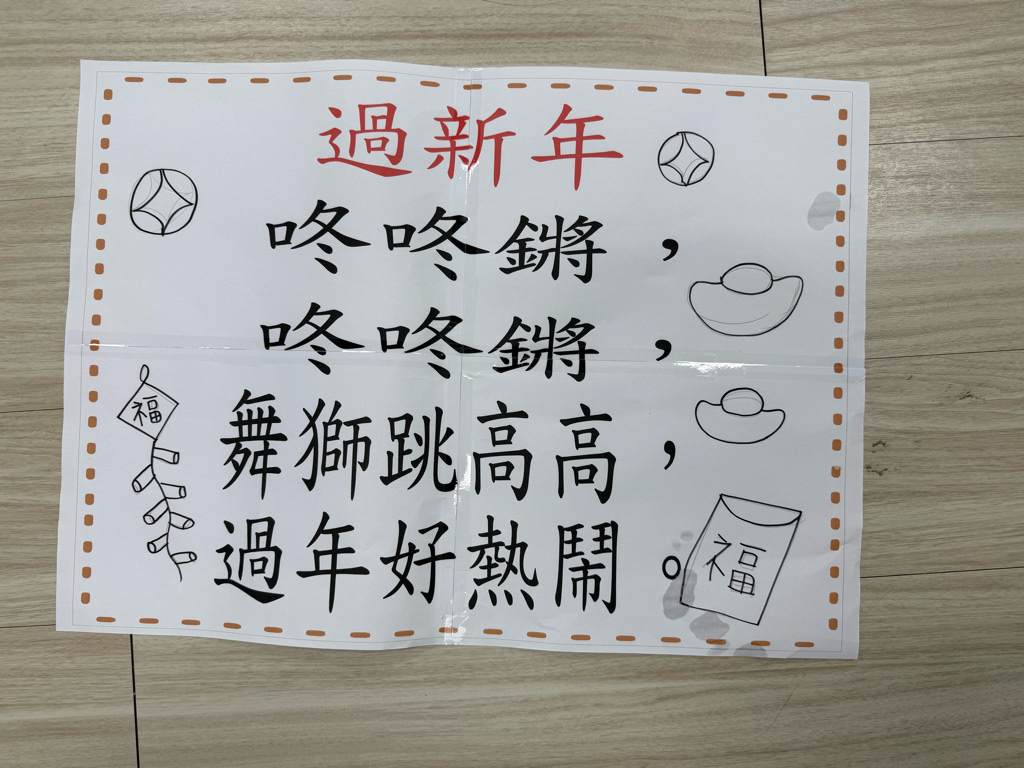 過新年
咚咚鏘，
咚咚鏘，
舞獅跳高高，
過年好熱鬧。
福
福